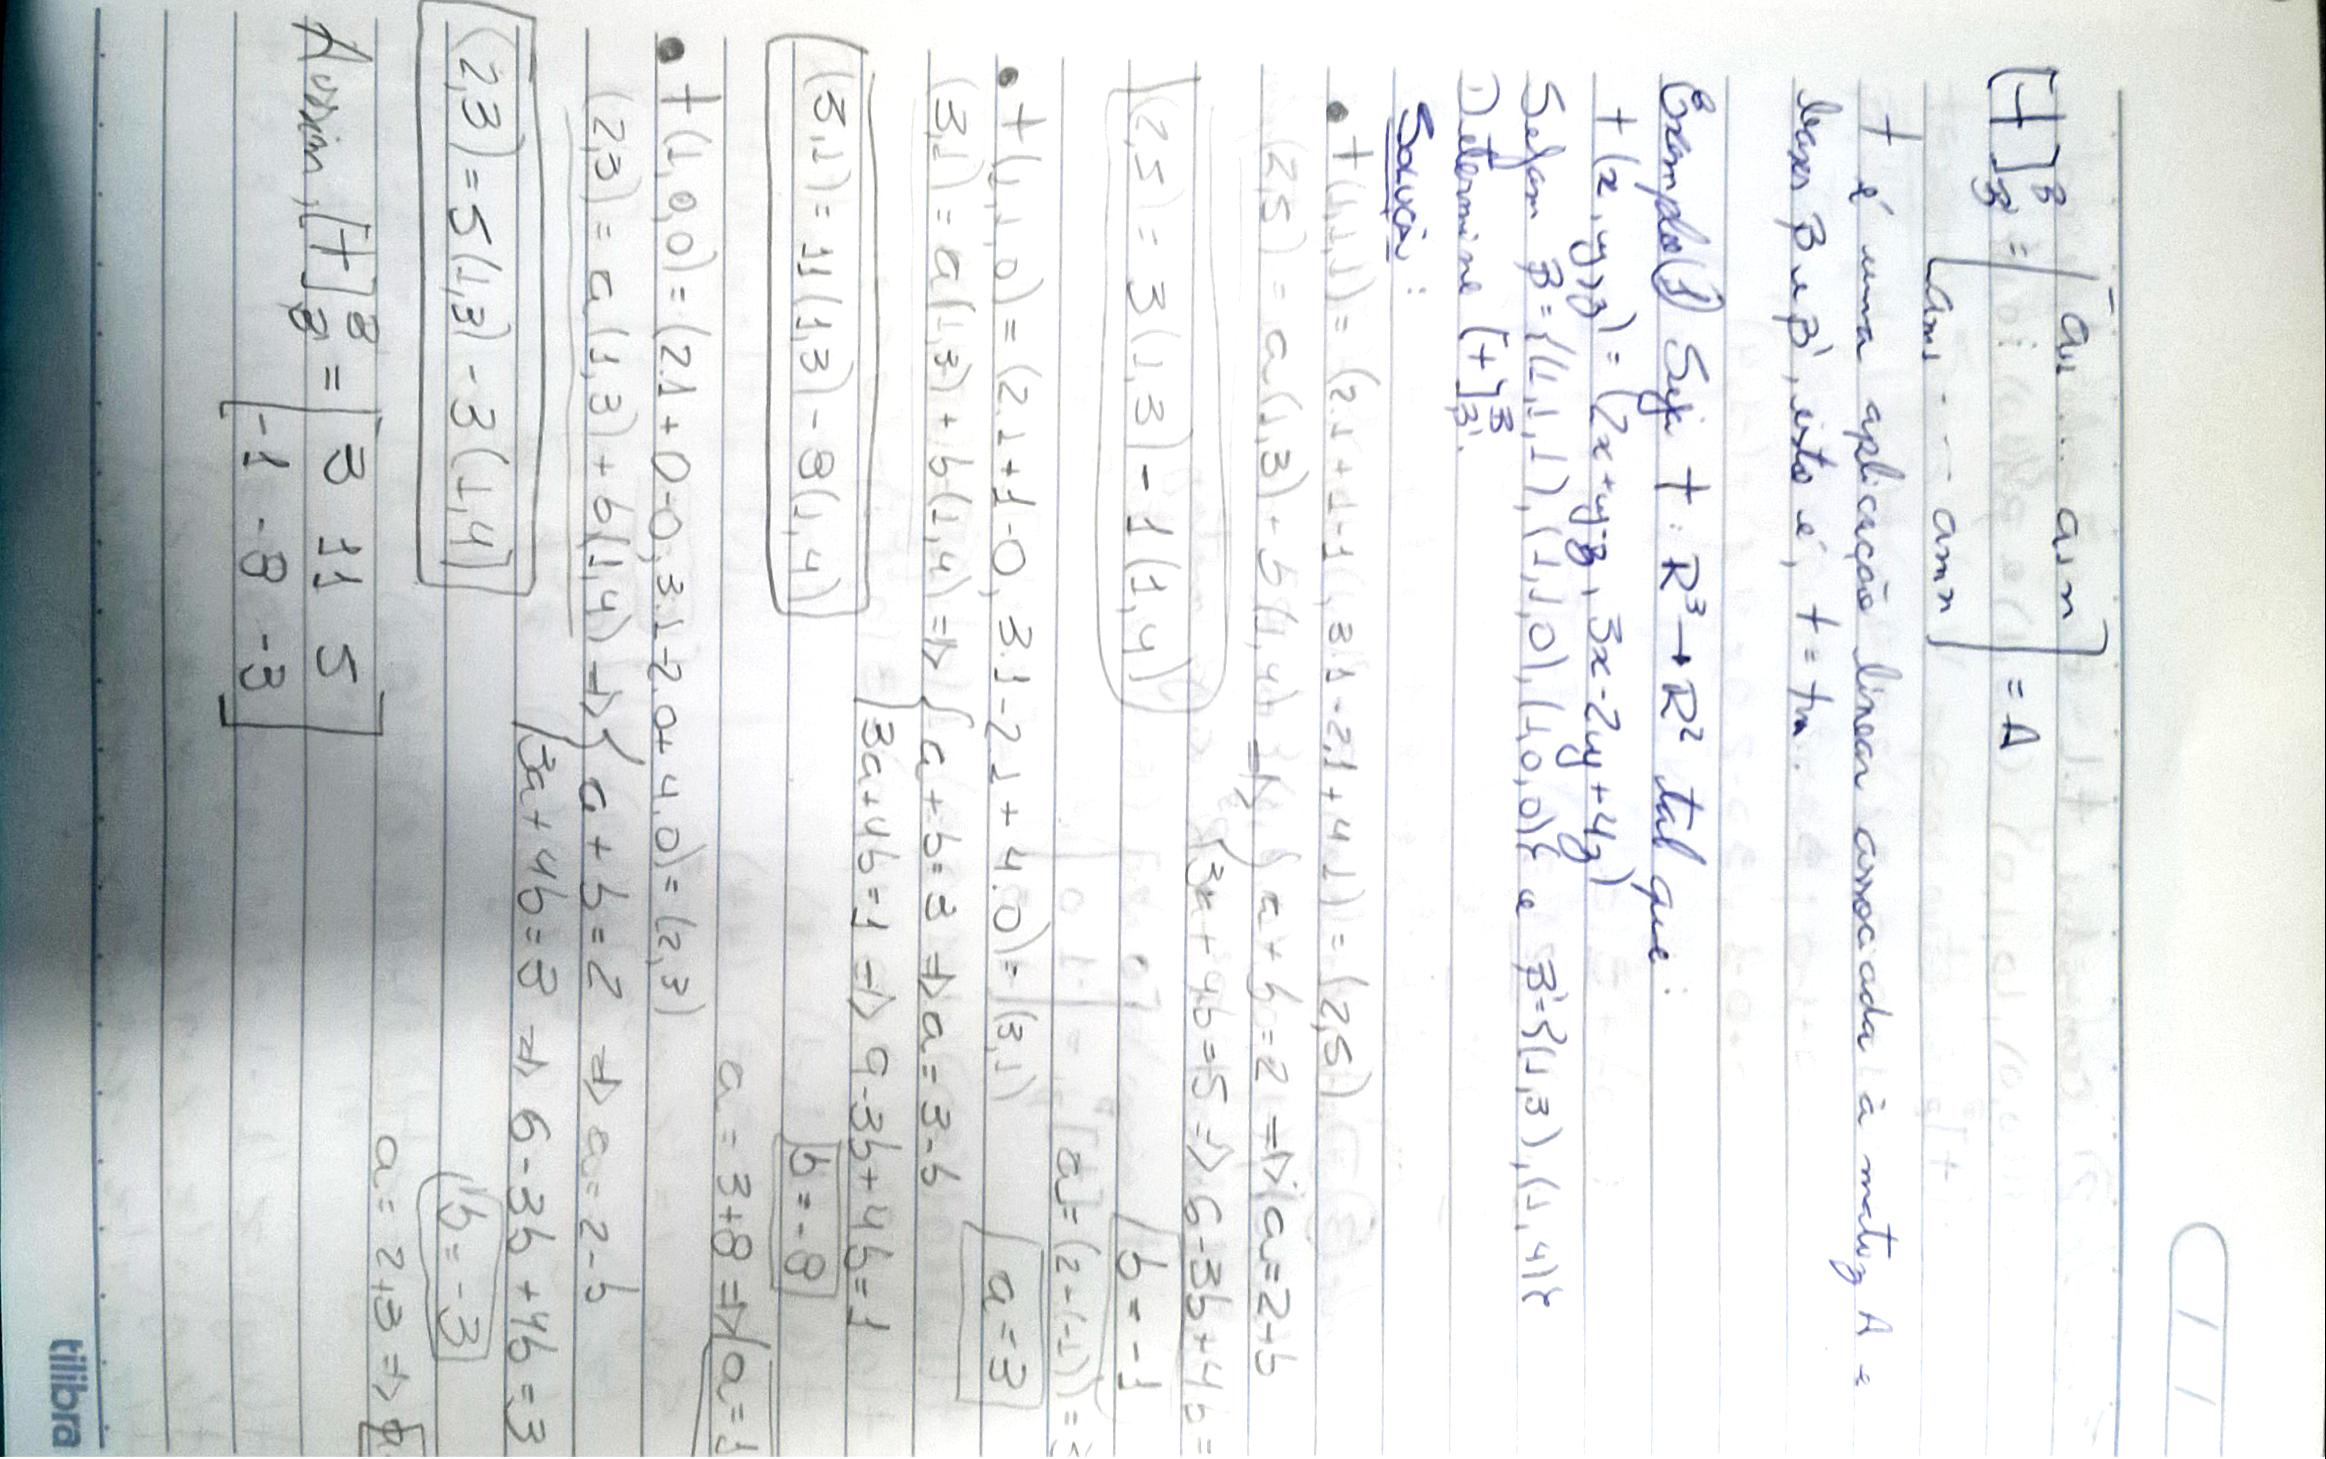 [T]^β_β' = [a11 ... a1n ⋮ am1 ... amn] = A
T é uma aplicação linear associada à matriz A e
bases β e β', isto é, T = TA.
Exemplo 1) Seja T: R³ → R² tal que:
T(x,y,z) = (2x+y-z, 3x-2y+4z)
Sejam β = {(1,1,1), (1,1,0), (1,0,0)} e β' = {(1,3), (1,4)}
Determine [T]^β_β'.
Solução:
• T(1,1,1) = (2.1+1-1, 3.1-2.1+4.1) = (2,5)
(2,5) = a(1,3) + b(1,4) => { a+b=2 => a=2-b
3a+4b=5 => 6-3b+4b=
(2,5) = 3(1,3) - 1(1,4)
b = -1
a = (2-(-1)) = 3
• T(1,1,0) = (2.1+1-0, 3.1-2.1+4.0) = (3,1)
a = 3
(3,1) = a(1,3) + b(1,4) => { a+b=3 => a=3-b
3a+4b=1 => 9-3b+4b=1
(3,1) = 11(1,3) - 8(1,4)
b = -8
a = 3+8 => a=1
• T(1,0,0) = (2.1+0-0, 3.1-2.0+4.0) = (2,3)
(2,3) = a(1,3) + b(1,4) => { a+b=2 => a=2-b
3a+4b=3 => 6-3b+4b=3
(2,3) = 5(1,3) - 3(1,4)
b = -3
a = 2+3 => a
Assim, [T]^β_β' = [3 11 5
-1 -8 -3]
tilibra